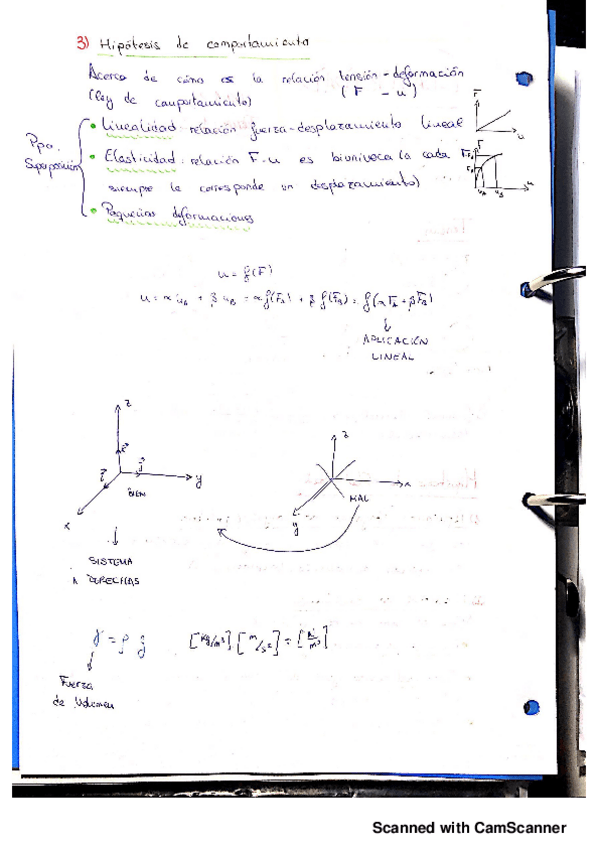 3) Hipótesis de comportamiento
Acerca de cómo es la relación tensión-deformación
(ley de comportamiento) (F - u)
Ppo. Superposición
• Linealidad: relación fuerza-desplazamiento lineal
F
u
• Elasticidad: relación F-u es biunívoca (a cada F
siempre le corresponde un desplazamiento)
F
u
• Pequeñas deformaciones
u = f(F)
u = α u_A + β u_B = α f(F_A) + β f(F_B) = f(α F_A + β F_B)
APLICACIÓN
LINEAL
z
y
x
BIEN
SISTEMA
A DERECHAS
z
x
y
MAL
γ = ρ g [kg/m³][m/s²] = [N/m³]
Fuerza
de Volumen
Scanned with CamScanner